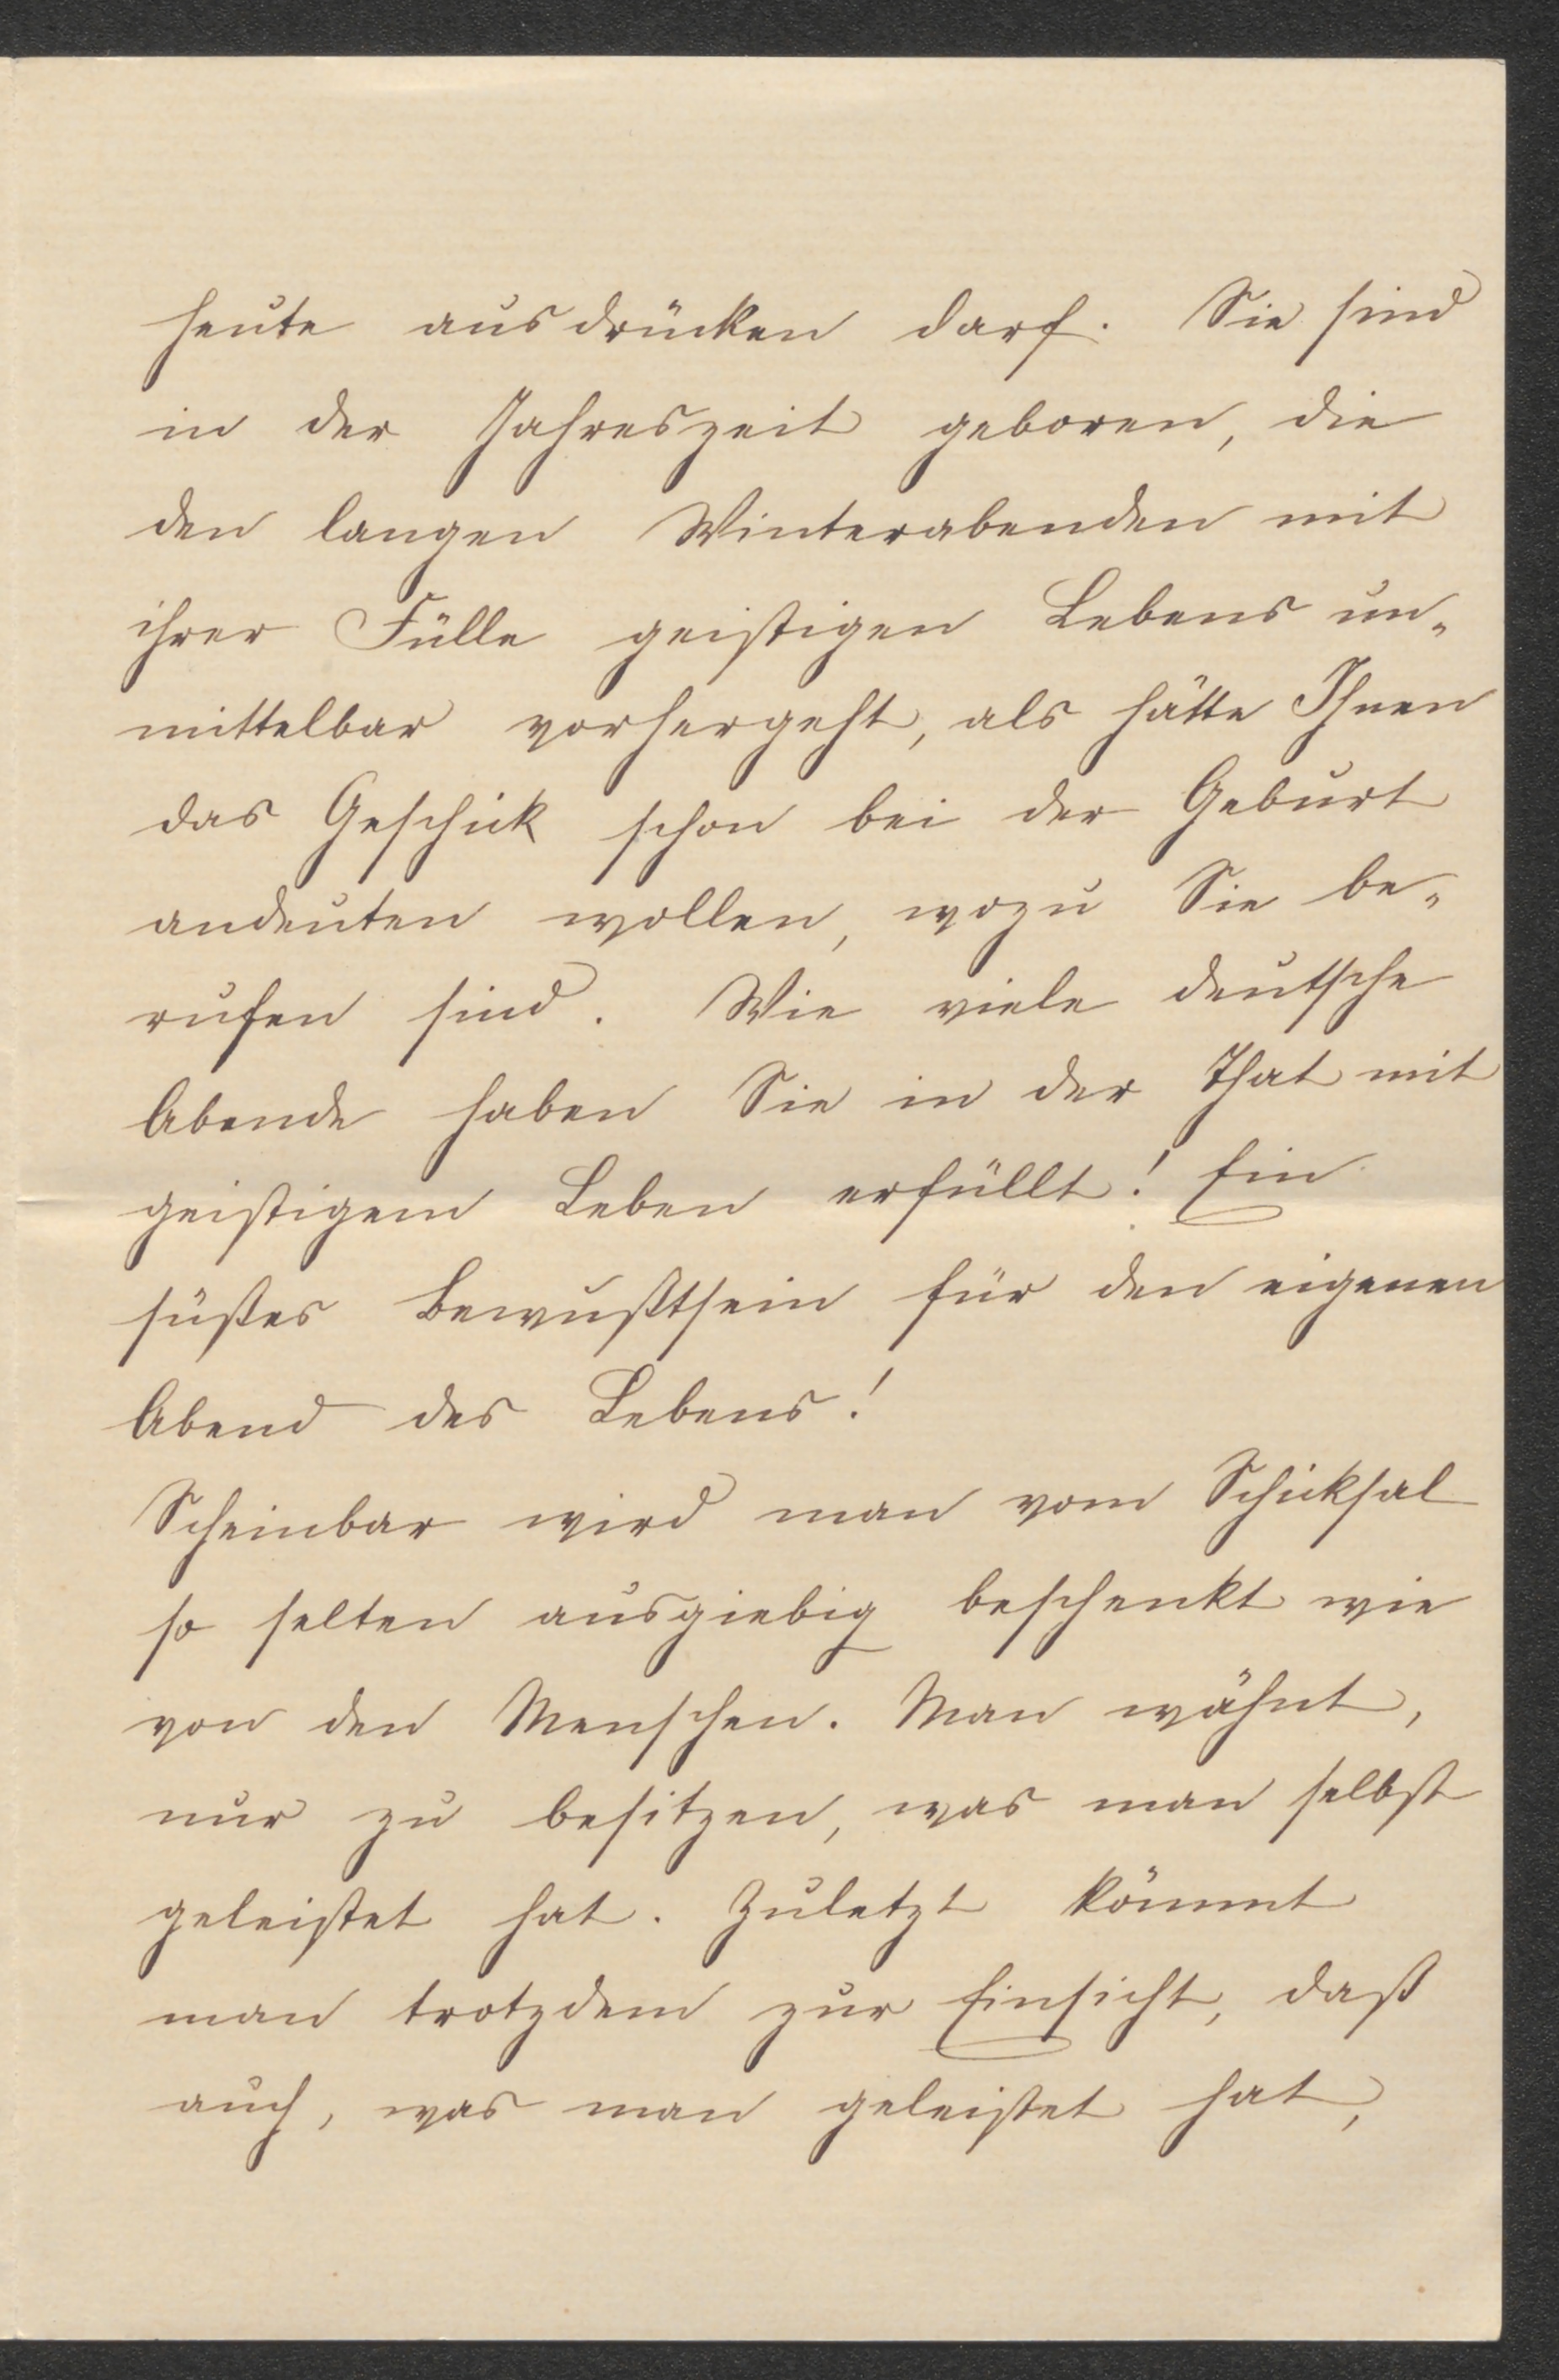 heute ausdrücken darf. Sie sind
in der Jahreszeit geboren, die
den langen Winterabenden mit
ihrer Fülle geistigen Lebens un-
mittelbar vorhergeht, als hätte Ihnen
das Geschick schon bei der Geburt
andeuten wollen, wozu Sie be-
rufen sind. Wie viele deutsche
Abende haben Sie in der That mit
geistigem Leben erfüllt! Ein
süßes Bewußtsein für den eigenen
Abend des Lebens!
Scheinbar wird man vom Schicksal
so selten ausgiebig beschenkt wie
von den Menschen. Man wähnt,
nur zu besitzen, was man selbst
geleistet hat. Zuletzt kömmt
man trotzdem zur Einsicht, daß
auch, was man geleistet hat,